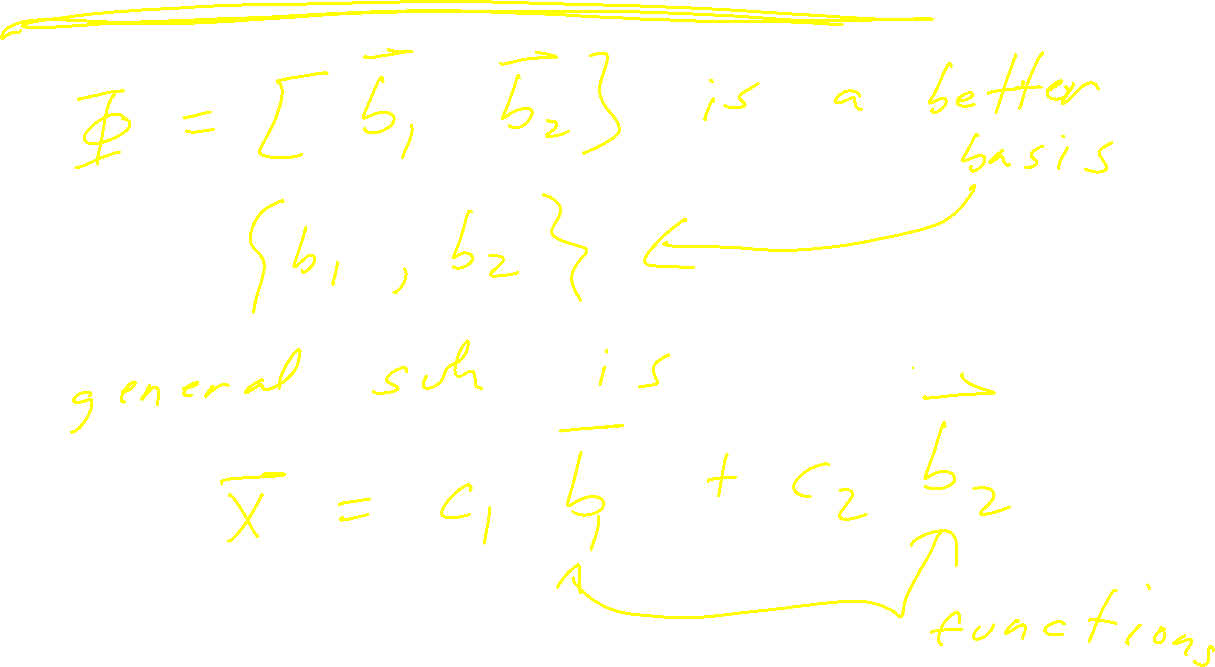 Φ = [ b⃗₁ b⃗₂ ] is a better
basis
{ b₁ , b₂ } ←
general soln is
x̄ = c₁ b̄₁ + c₂ b⃗₂
functions